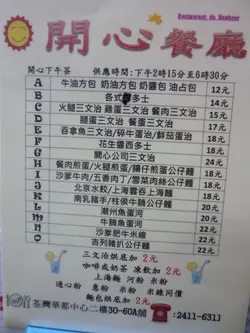 Restaurant du Bonheur
開心餐廳
開心下午茶 供應時間:下午2時15分至6時30分
A 牛油方包 奶油方包 奶醬包 油占包 12元
B 各式多士 14元
C 火腿三文治 雞蛋三文治 餐肉三文治 15元
D 腿蛋三文治 餐蛋三文治 17元
E 吞拿魚三文治/碎牛蛋治/鮮茄蛋治 18元
F 花生醬西多士 18元
G 開心公司三文治 24元
H 餐肉煎蛋/火腿煎蛋/腸仔煎蛋公仔麵 18元
I 沙爹牛肉/五香肉丁/雪菜肉絲公仔麵 18元
J 北京水餃/上海雲吞上海麵 20元
K 南乳豬手/柱侯牛腩公仔麵 22元
L 潮州魚蛋河 18元
M 牛腩魚蛋河 22元
N 沙爹肥牛米線 22元
O 吉列豬扒公仔麵 22元
三文治烘底加 2元
咖啡或奶茶 凍飲加 2元
上海麵 河粉 米粉
通心粉 意粉 米粉 米線同價
麵包烘底加 2元
荃灣華都中心二樓30-60A舖 2411-6311